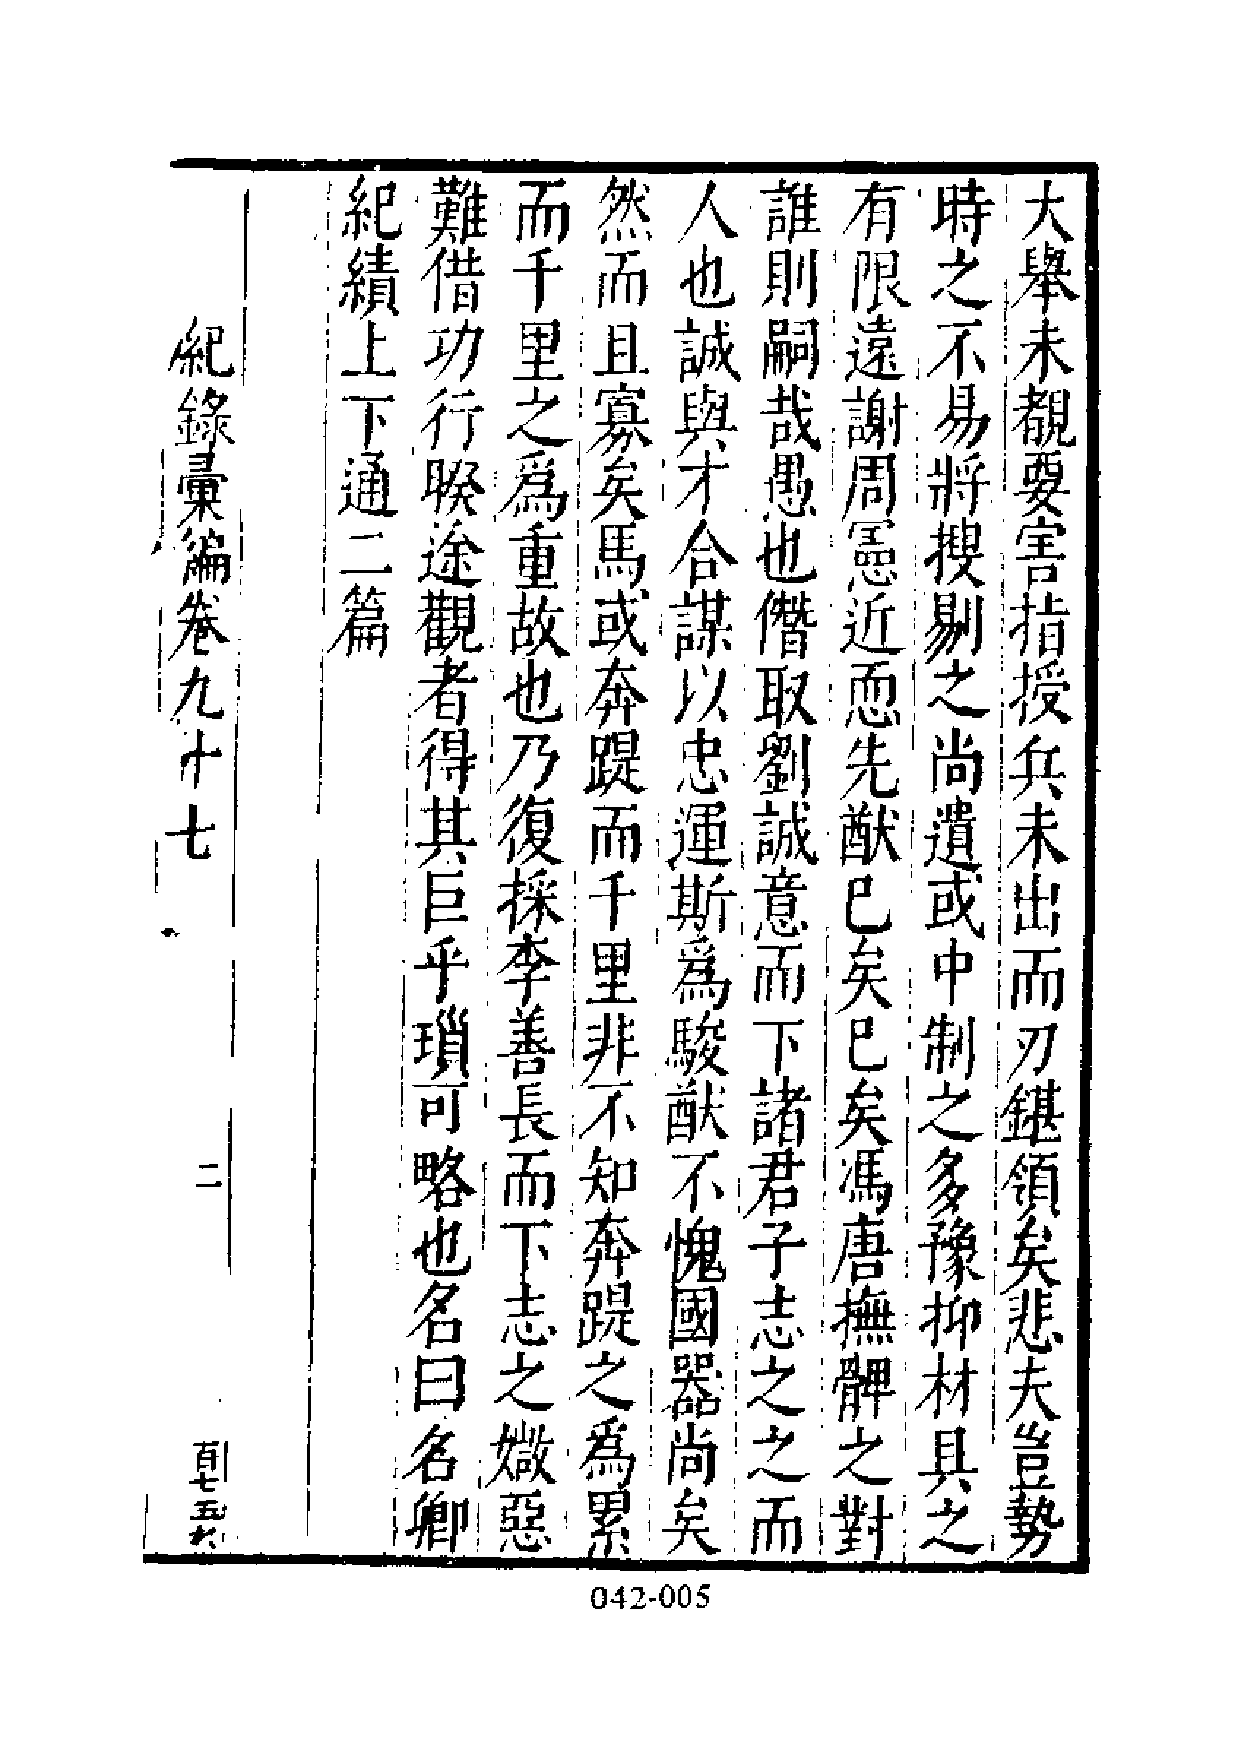 大舉未覩要害指授兵未出而刃鍖領矣悲夫豈勢
時之不易將搜剔之尚遺或中制之多豫抑材具之
有限遠謝周𡨥近恧先猷已矣已矣馮唐撫髀之對
誰則嗣哉愚也僭取劉誠意而下諸君子志之之而
人也誠與才合謀以忠運斯爲駿猷不愧國器尚矣
然而且寡矣馬或奔踶而千里非不知奔踶之爲累
而千里之爲重故也乃復採李善長而下志之媺惡
難偕功行暌途觀者得其巨乎瑣可略也名曰名卿
紀績上下通二篇
紀錄彙編卷九十七
二
042-005